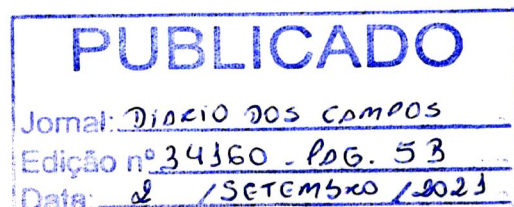 PUBLICADO
Jornal: DIARIO DOS CAMPOS
Edição nº 34160 - PAG. 5B
Data: 2 / SETEMBRO / 2021